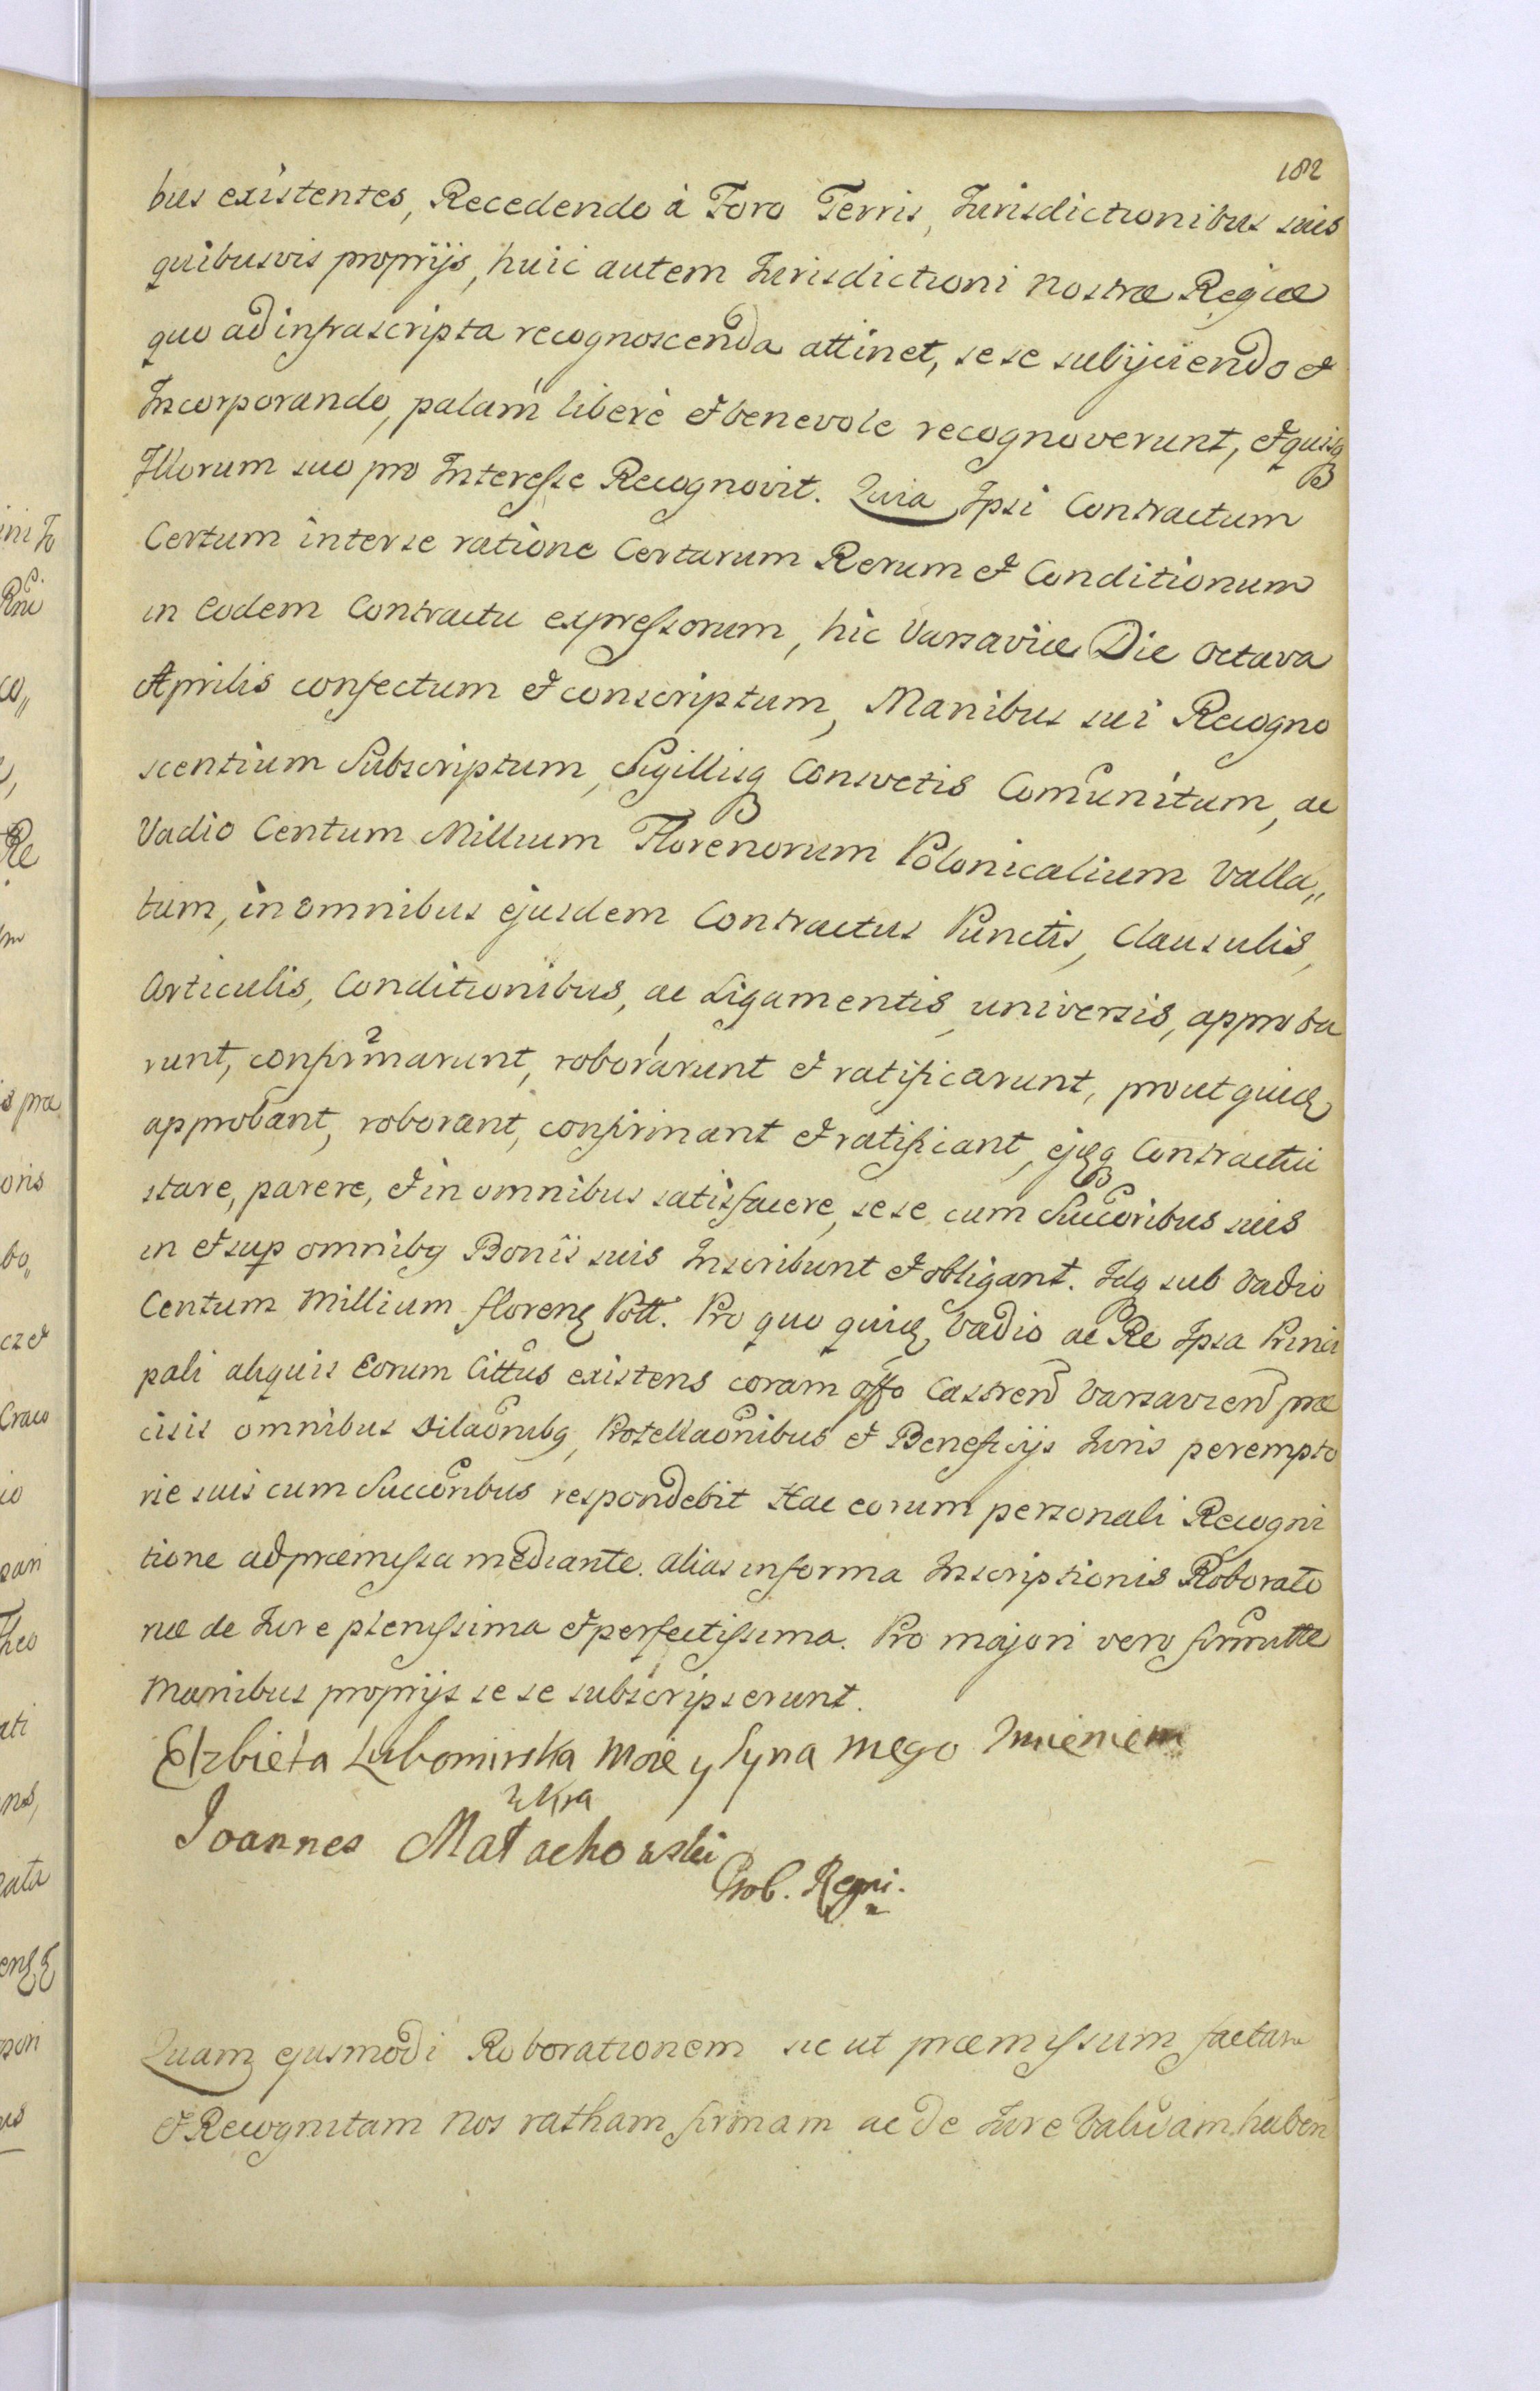 182
bus existentes, Recedendo à Foro Terris, Jurisdictionibus suis
quibusvis proprijs, huic autem Jurisdictioni Nostræ Regiæ
quo ad infrascripta recognoscenda attinet, sese subijciendo et
Incorporando, palàm liberè et benevole recognoverunt, et quisq
Illorum suo pro Interesse Recognovit. Quia Ipsi Contractum
Certum inter se ratione Certarum Rerum et Conditionum
in eodem Contractu expressorum, hic Varsaviæ Die Octava
Aprilis confectum et conscriptum, Manibus sui Recogno
scentium Subscriptum, Sigillisq Consvetis Comunitum, ac
Vadio Centum Millium Florenorum Polonicalium Valla„
tum, in omnibus ejusdem Contractus Punctis, Clausulis,
Articulis, Conditionibus, ac Ligamentis universis, approba
runt, confirmarunt, roborarunt et ratificarunt, prout quidem
approbant, roborant, confirmant et ratificant, ejq Contractui
stare, parere, et in omnibus satisfacere, sese cum Succoribus suis
in et sup omnibq Bonis suis Inscribunt et obligant. Idq sub Vadio
Centum Millium floren Poll. Pro quo quid Vadio ac Re Ipsa Princi
pali aliquis Eorum Cittus existens coram offo Castren Varsavien præ
cisis omnibus Dilaonibq, Protellaonibus et Beneficijs Juris perempto
rie suis cum Succoribus respondebit Hac eorum personali Recogni
tione ad præmissa mediante. alias in forma Inscriptionis Roborato
riæ de Jure plenissima et perfectissima. Pro majori vero firmitte
Manibus proprijs sese subscripserunt.
Elzbieta Lubomirska Moie y Syna mego Imieniem
Joannes Małachowski
Regni.
Quam ejusmodi Roborationem sic ut præmissum factam
et Recognitam Nos ratham firmam ac de Jure Validam haben